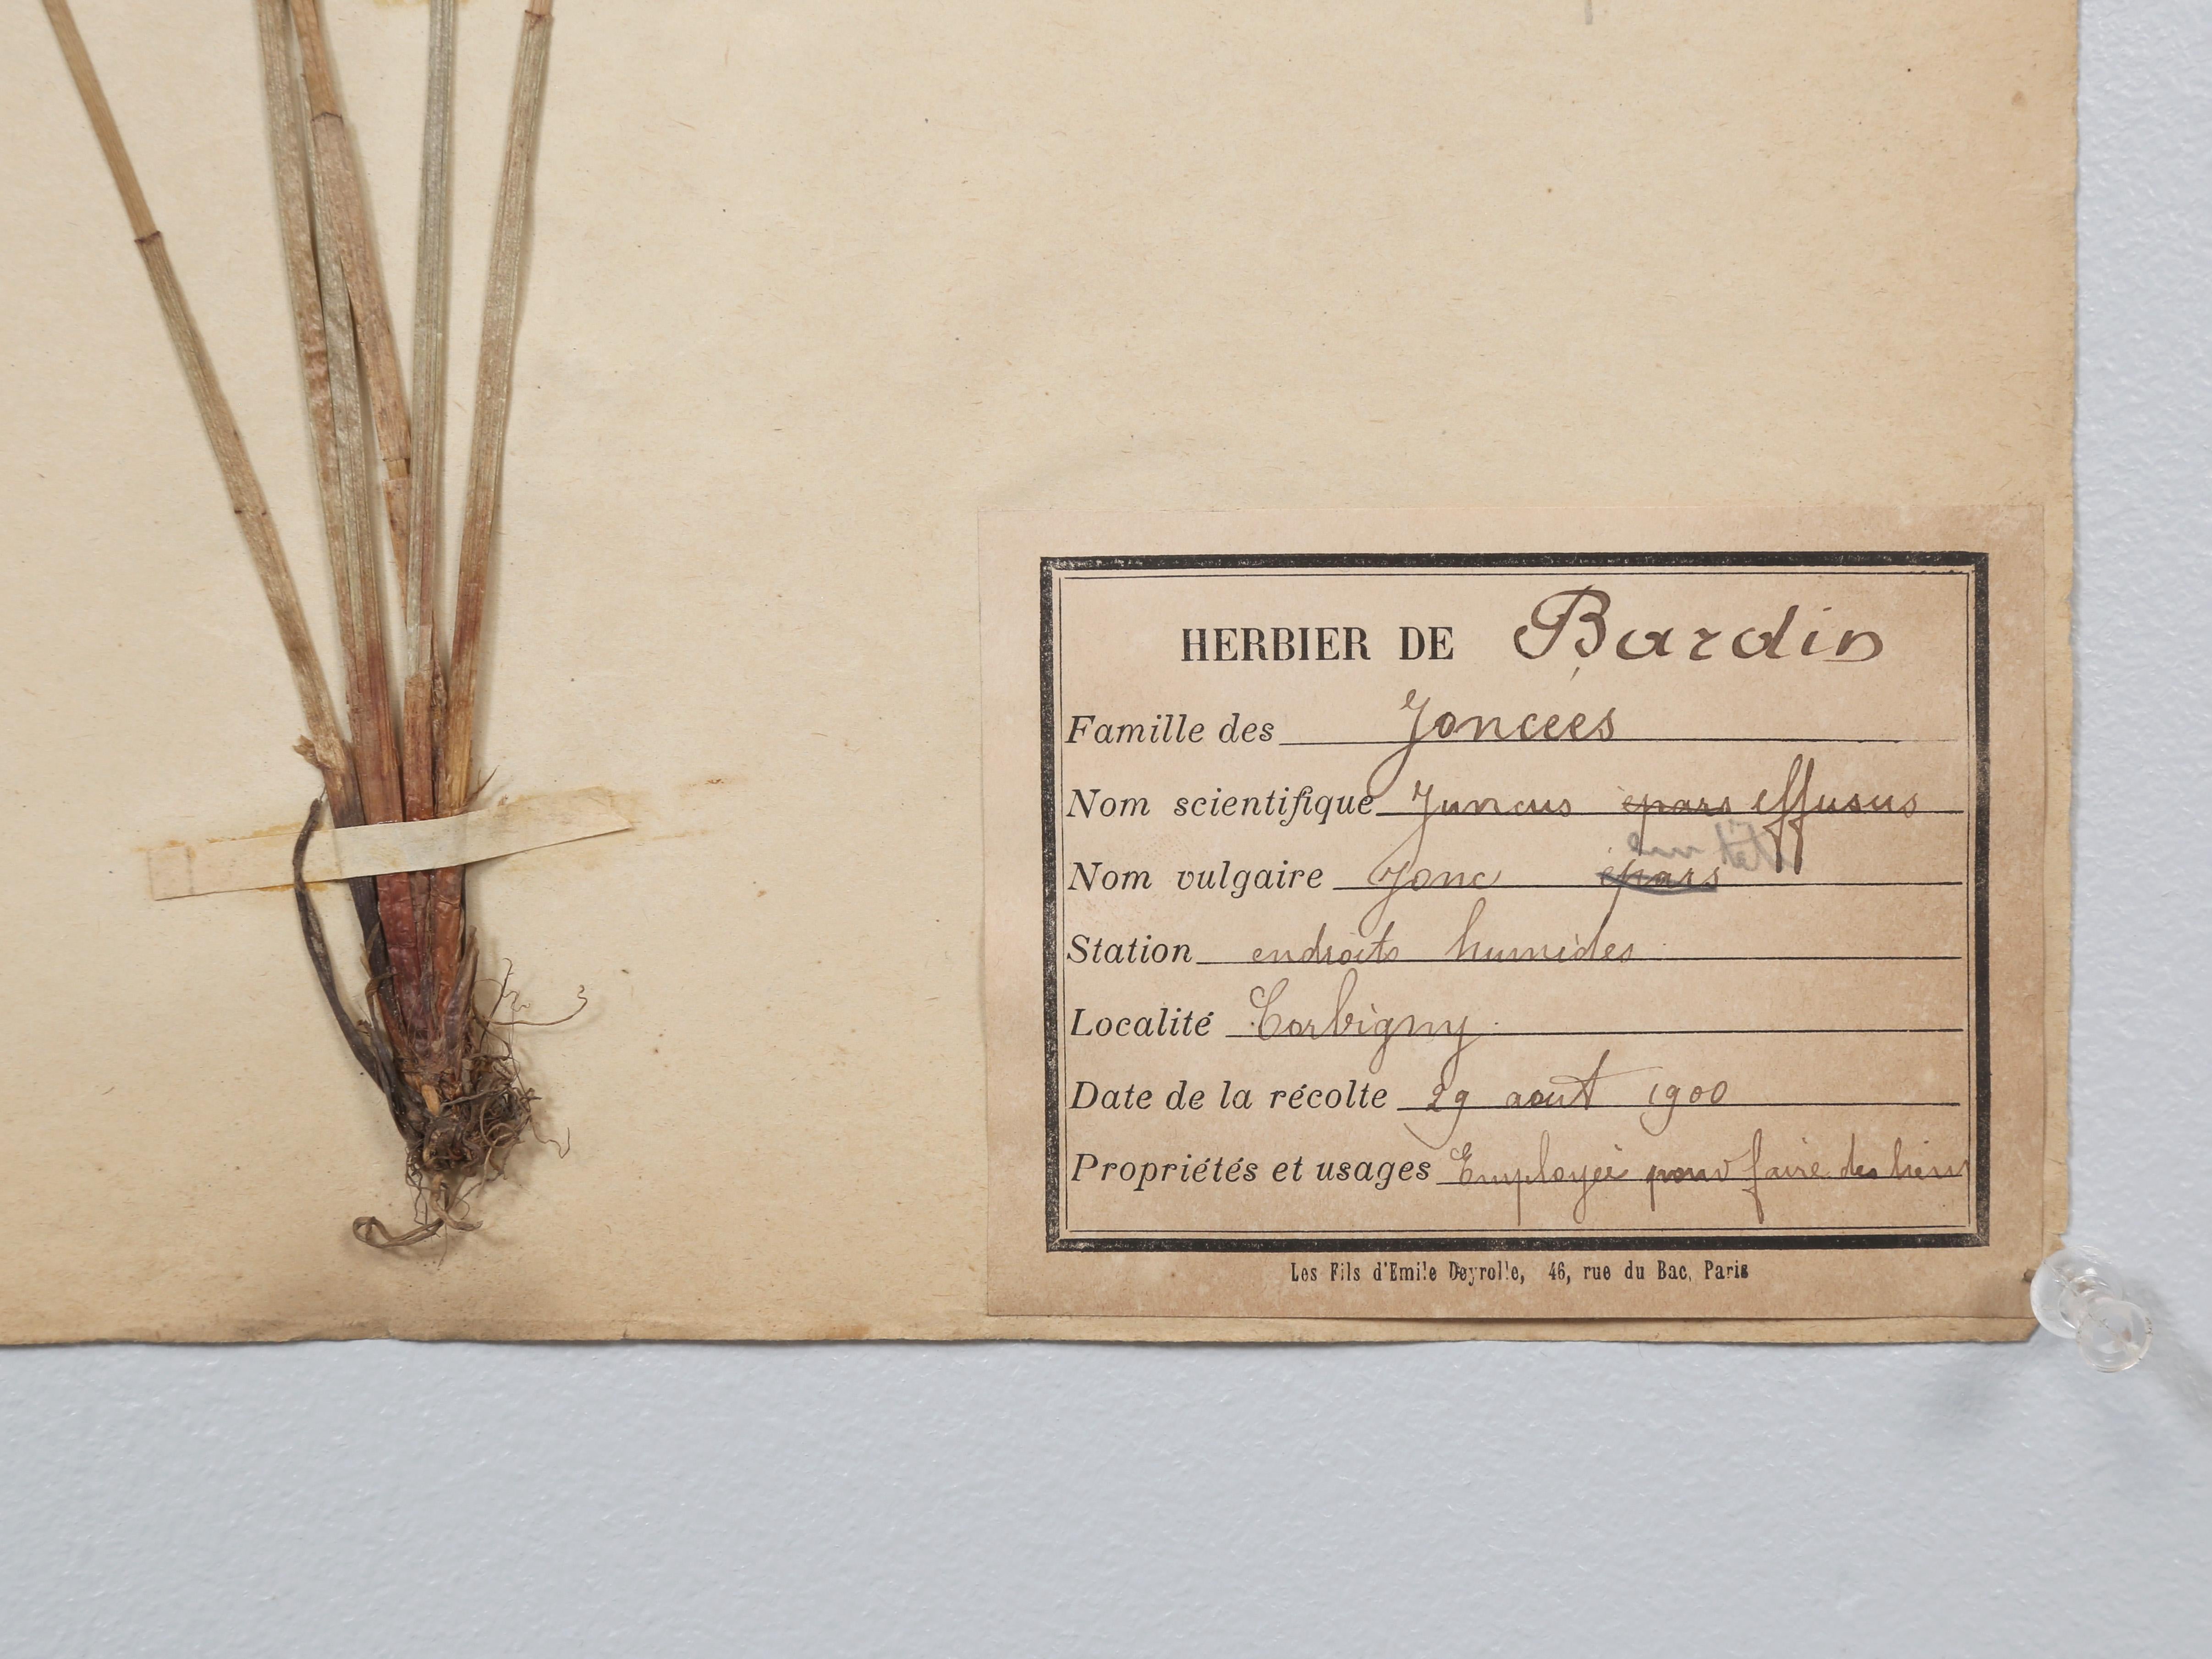 HERBIER DE Bardin
Famille des Joncees
Nom scientifique Juncus épars effusus
en tête
Nom vulgaire Jonc épars
Station endroits humides
Localité Corbigny
Date de la récolte 29 aout 1900
Propriétés et usages Employée pour faire des liens
Les Fils d'Emile Deyrolle, 46, rue du Bac, Paris